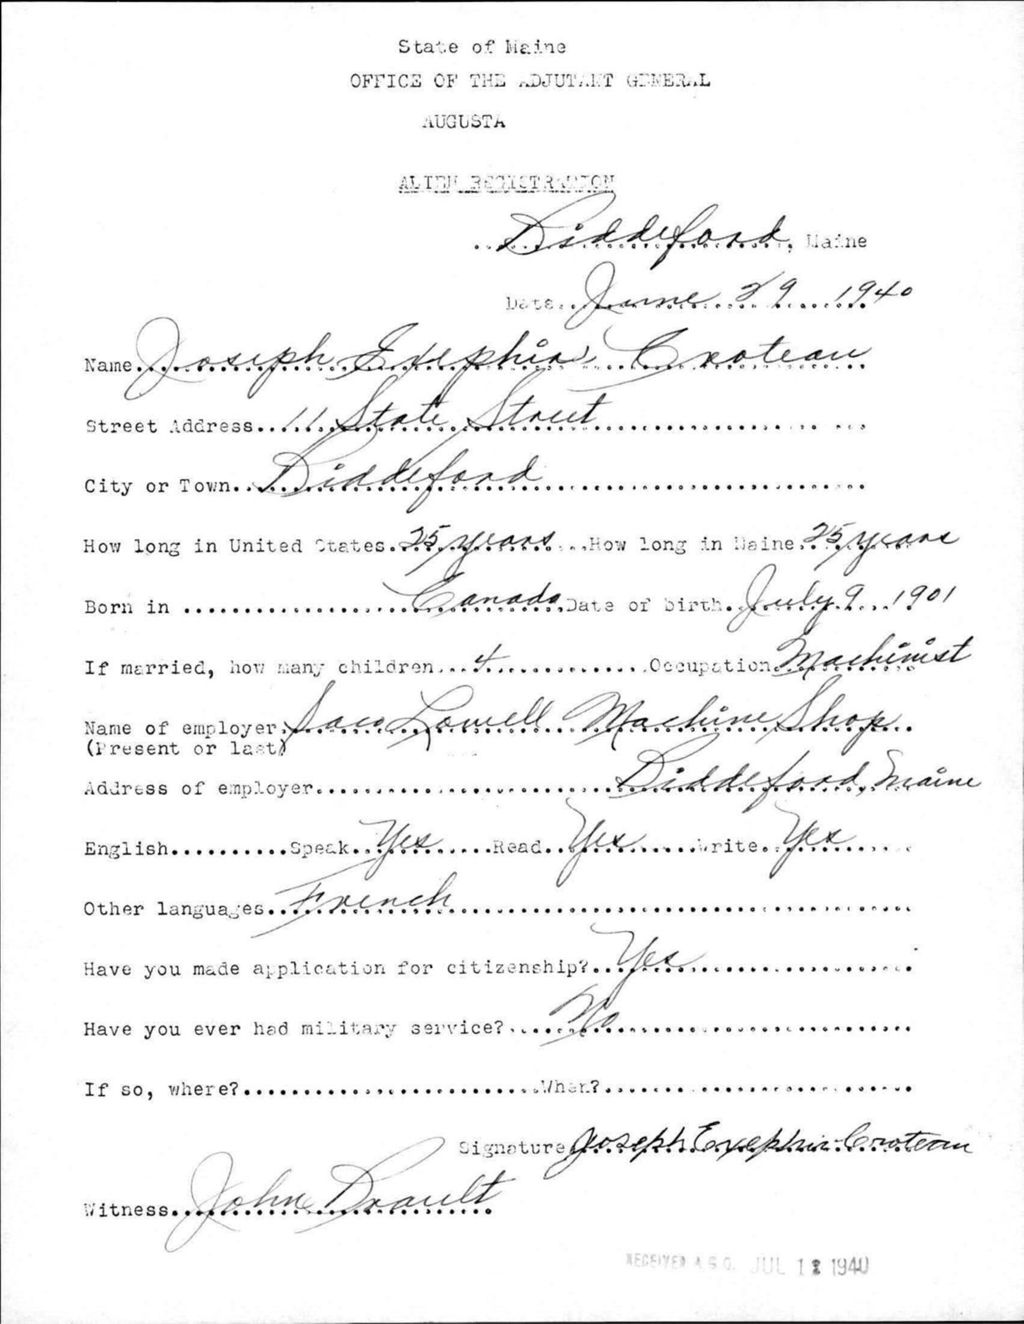 State of Maine
OFFICE OF THE ADJUTANT GENERAL
AUGUSTA
ALIEN REGISTRATION
Biddeford, Maine
Date June 29 1940
Name Joseph Exephir Croteau
Street Address 11 State Street
City or Town Biddeford
How long in United States 25 years How long in Maine 25 years
Born in Canada Date of birth July 9 1901
If married, how many children 4 Occupation Machinist
Name of employer Saco Lowell Machine Shop
(Present or last)
Address of employer Biddeford, Maine
English Speak Yes Read Yes Write Yes
Other languages French
Have you made application for citizenship? Yes
Have you ever had military service? No
If so, where? When?
Signature Joseph Exephir Croteau
Witness John Brault
RECEIVED A.G.O. JUL 12 1940